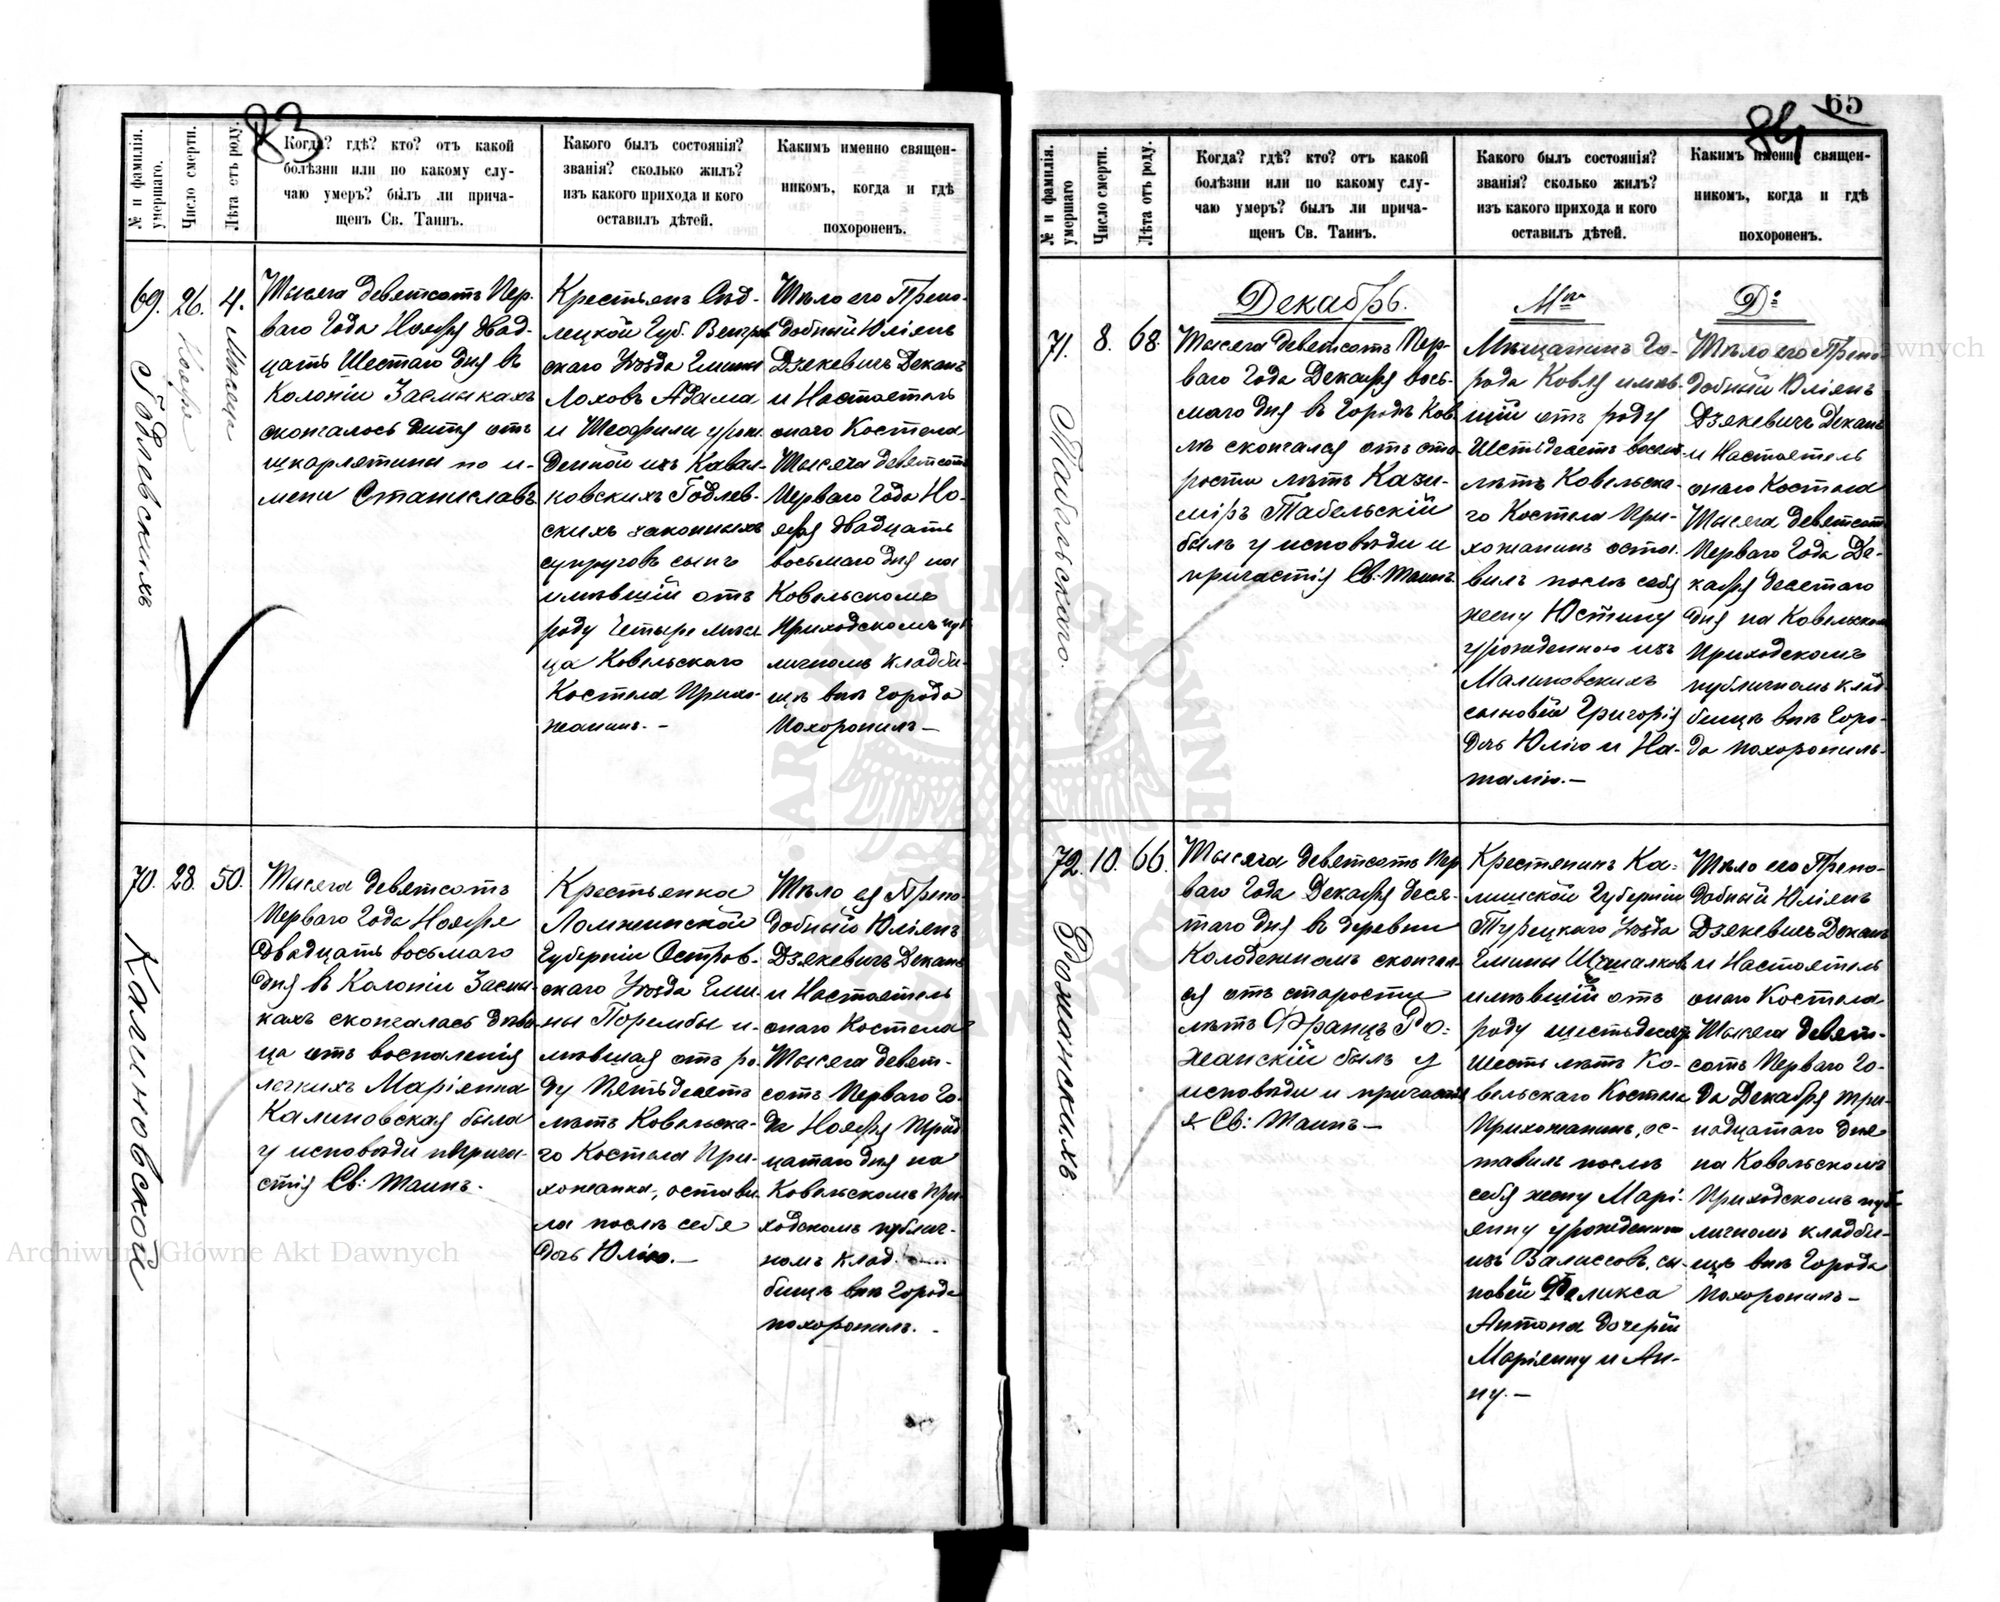 83
№ и фамилія умершаго.
Число смерти.
Лѣта отъ роду.
Когда? гдѣ? кто? отъ какой
болѣзни или по какому слу-
чаю умеръ? былъ ли прича-
щенъ Св. Таинъ.
Какого былъ состоянія?
званія? сколько жилъ?
изъ какого прихода и кого
оставилъ дѣтей.
Какимъ именно священ-
никомъ, когда и гдѣ
похороненъ.
69.
Годлевскихъ
26.
Ноября
4.
Мѣсяца
Тысяча девятсотъ Пер-
ваго Года Ноября двад-
цать Шестаго дня въ
Колоніи Засмыкахъ
скончалось дитя отъ
шкарлятины по и-
мени Станиславъ
Крестьянъ Сѣд-
лецкой Губ. Венгров
скаго Уѣзда Гмины
Лоховъ Адама
и Теофили урож.
денной изъ Кавал-
ковскихъ Годлев-
скихъ законныхъ
супруговъ сынъ
имѣвшій отъ
роду Четыре мѣся
ца Ковельскаго
Костела Прихо-
жанинъ. —
Тѣло его Препо-
добный Юліянъ
Дзякевичъ Деканъ
и Настоятель
онаго Костела
Тысяча девятсотъ
Перваго Года Но-
ября двадцать
восьмаго дня на
Ковельскомъ
Приходскомъ пуб
личномъ кладби-
щѣ внѣ города
похоронилъ —
70.
Калиновской
28.
50.
Тысяча девятсотъ
Перваго Года Ноября
Двадцать восьмаго
дня въ Колоніи Засмы-
кахъ скончалась дѣви-
ца отъ воспаленія
легкихъ Маріянна
Калиновская была
у исповѣди и прича-
стія Св: Таинъ.
Крестьянка
Ломжинской
Губерніи Остров-
скаго Уѣзда Гми-
ны Порембы и-
мѣвшая отъ ро-
ду Пятьдесятъ
лѣтъ Ковельска-
го Костела При-
хожанка, остави-
ла послѣ себя
дочь Юлію. —
Тѣло ея Препо-
добный Юліянъ
Дзякевичъ Деканъ
и Настоятель
онаго Костела
Тысяча девят-
сотъ Перваго Го-
да Ноября Трид
цатаго дня на
Ковельскомъ При-
ходскомъ публич-
номъ клад-
бищѣ внѣ города
похоронилъ. -
65
84
№ и фамилія умершаго
Число смерти.
Лѣта отъ роду.
Когда? гдѣ? кто? отъ какой
болѣзни или по какому слу-
чаю умеръ? былъ ли прича-
щенъ Св. Таинъ.
Какого былъ состоянія?
званія? сколько жилъ?
изъ какого прихода и кого
оставилъ дѣтей.
Какимъ именно священ-
никомъ, когда и гдѣ
похороненъ.
Декабрь.
71.
Табельскаго.
8.
68
Тысяча девятсотъ Пер-
ваго Года Декабря вось-
маго дня въ Городѣ Ков
лѣ скончался отъ ста-
рости лѣтъ Кази-
міръ Табельскій
былъ у исповѣди и
причастія Св: Таинъ
Мѣщанинъ Го-
рода Ковля имѣв-
шій отъ роду
Шестьдесятъ восемь
лѣтъ Ковельска-
го Костела При-
хожанинъ оста-
вилъ послѣ себя
жену Юстину
урожденною изъ
Малиновскихъ
сыновей Григорія
дочь Юлію и На-
талію. —
Тѣло его Препо-
добный Юліянъ
Дзякевичъ Деканъ
и Настоятель
онаго Костела
Тысяча девятсотъ
Перваго Года Де-
кабря десятаго
дня на Ковельском
Приходскомъ
публичномъ клад-
бищѣ внѣ Горо-
да похоронилъ-
72.
Рожанскихъ
10.
66.
Тысяча девятсотъ Пер
ваго Года Декабря деся-
таго дня въ деревни
Колодежномъ скончал
ся отъ старости
лѣтъ Францъ Ро-
жанскій былъ у
исповѣди и причастія
Св: Таинъ —
Крестянинъ Ка-
лишской Губерніи
Турецкаго Уѣзда
Гмины
имѣвшій отъ
роду шестьдесятъ
Шесть лѣтъ Ко-
вельскаго Костела
Прихожанинъ, ос-
тавилъ послѣ
себя жену Марі-
янну урожденною
изъ Валасовъ, сы-
новей Феликса
Антона дочерей
Маріянну и Ан-
ну. —
Тѣло его Препо-
добный Юліянъ
Дзякевичъ Деканъ
и Настоятель
онаго Костела
Тысяча девят-
сотъ Перваго Го-
да Декабря три-
надцатаго дня
на Ковельскомъ
Приходскомъ пуб-
личномъ кладби-
щѣ внѣ Города
похоронилъ —
Archiwum Główne Akt Dawnych
Archiwum Główne Akt Dawnych
ARCHIWUM GŁÓWNE AKT DAWNYCH